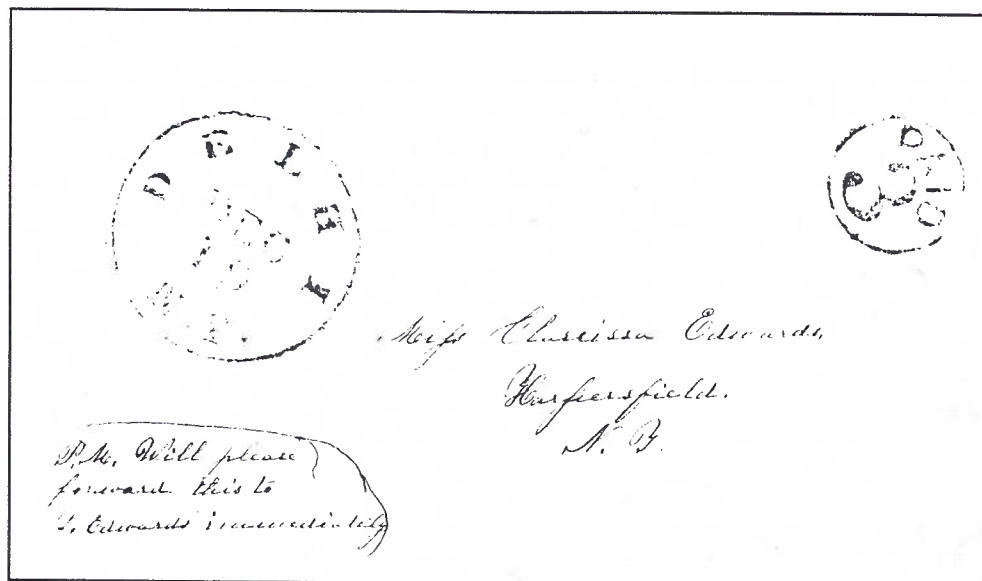 DELHI
N.Y.
PAID
3
Miss Clarissa Edwards,
Harpersfield.
N. Y.
P.M. Will please
forward this to
Edwards immediately